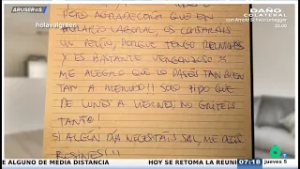 ARUSER@S
holavalgreen
DAÑO
COLATERAL
20:00
PERO AGRADECERÍA QUE EN
HORARIO LABORAL, OS CORTARAIS
UN PELÍN, PORQUE TENGO REUNIONES
Y ES BASTANTE VERGONZOSO
ME ALEGRO QUE LO PASÉIS TAN BIEN
TAN A MENUDO!! SOLO PIDO QUE
DE LUNES A VIERNES, NO GRITÉIS
TANTO!
SI ALGÚN DÍA NECESITÁIS SAL, ME
BESINES!!!
E ALGUNO DE MEDIA DISTANCIA
HOY SE RETOMA LA REUNI
07:18
jueves 5